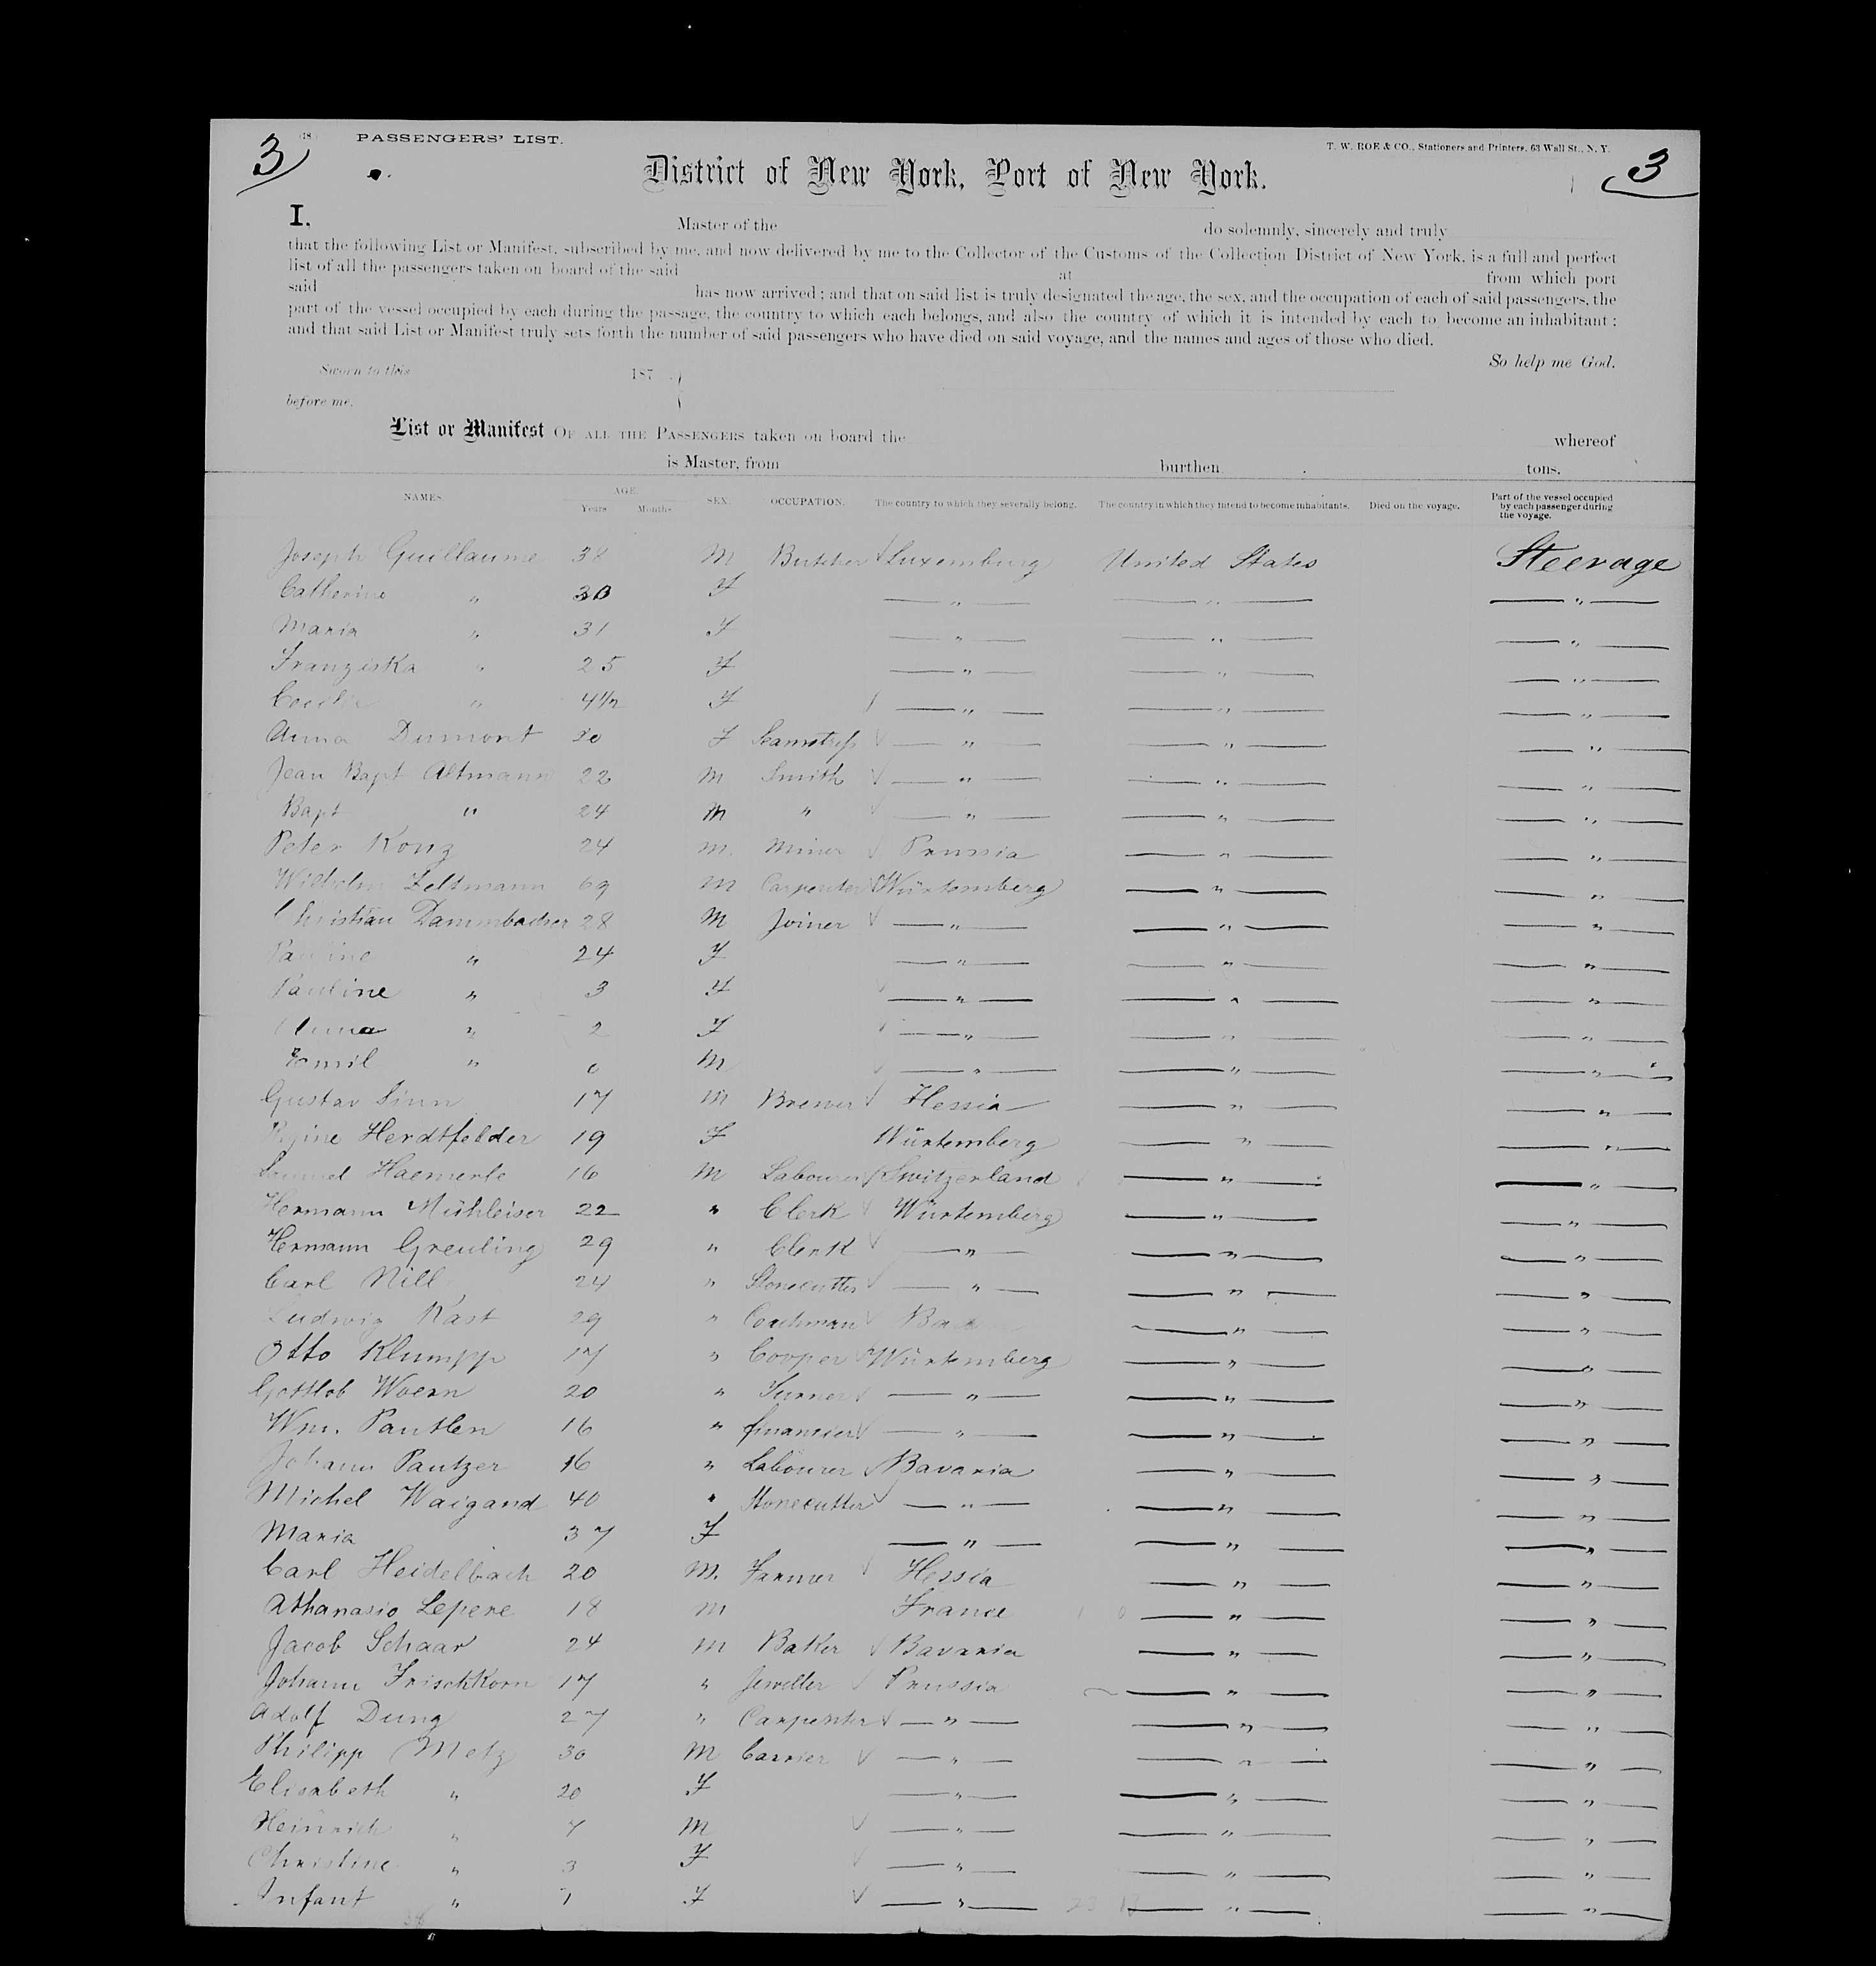 3 (18) PASSENGERS' LIST. T. W. ROE & CO., Stationers and Printers, 63 Wall St., N. Y. 3
District of New York, Port of New York.
I, Master of the do solemnly, sincerely and truly
that the following List or Manifest, subscribed by me, and now delivered by me to the Collector of the Customs of the Collection District of New York, is a full and perfect
list of all the passengers taken on board of the said at from which port
said has now arrived; and that on said list is truly designated the age, the sex, and the occupation of each of said passengers, the
part of the vessel occupied by each during the passage, the country to which each belongs, and also the country of which it is intended by each to become an inhabitant;
and that said List or Manifest truly sets forth the number of said passengers who have died on said voyage, and the names and ages of those who died.
So help me God.
Sworn to this 187
before me.
List or Manifest OF ALL THE PASSENGERS taken on board the whereof
is Master, from burthen tons.
NAMES. AGE. Years Months SEX. OCCUPATION. The country to which they severally belong. The country in which they intend to become inhabitants. Died on the voyage. Part of the vessel occupied by each passenger during the voyage.
Joseph Guillaume 38 M Butcher Luxemburg United States Steerage
Catherine " 30 F " " "
Maria " 31 F " " "
Franziska " 25 F " " "
Cecilie " 4½ F " " "
Anna Dumont 30 F Seamstress " " "
Jean Bapt Altmann 22 M Smith " " "
Bapt " 24 M " " " "
Peter Konz 24 M. Miner Prussia " "
Wilhelm Zeltmann 69 M Carpenter Würtemberg " "
Christian Dammbacher 28 M Joiner " " "
Pauline " 24 F " " "
Pauline " 3 F " " "
Anna " 2 F " " "
Emil " 0 M " " "
Gustav Sinn 17 M Brewer Hessia " "
Regine Herdtfelder 19 F Würtemberg " "
Samuel Haemerle 16 M Labourer Switzerland " "
Hermann Mühleiser 22 " Clerk Würtemberg " "
Hermann Greuling 29 " Clerk " " "
Carl Nill 24 " Stonecutter " " "
Ludwig Kast 29 " Coachman Baden " "
Otto Klumpp 17 " Cooper Würtemberg " "
Gottlob Woern 20 " Turner " " "
Wm. Pantlen 16 " financier " " "
Johann Pautzer 16 " Labourer Bavaria " "
Michel Waigand 40 " Stonecutter " " "
Maria 37 F " " "
Carl Heidelbach 20 M. Farmer Hessia " "
Athanasio Lepere 18 M France " "
Jacob Schaar 24 M Baker Bavaria " "
Johann Frischkorn 17 " Jeweller Prussia " "
Adolf Dung 27 " Carpenter " " "
Philipp Metz 30 M Carrier " " "
Elisabeth " 20 F " " "
Heinrich " 7 M " " "
Christine " 3 F " " "
Infant " 1 F " " "